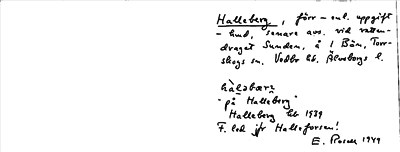 Halleberg, förr - enl. uppgift
- hmd, senare avs. vid vatten-
draget Sunden, å 1 Bön, Torr-
skogs sn. Vedbo hd. Älvsborgs l.
hàlǝbærɛ
"på Halleberg"
Halleberg hk 1939
F. led jfr Halleforsen!
E. Rosell 1949